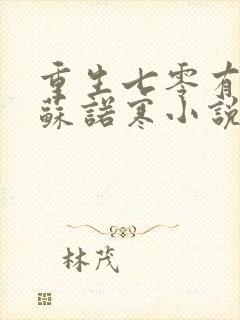 重生七零有
蘇諾寒小說
林茂